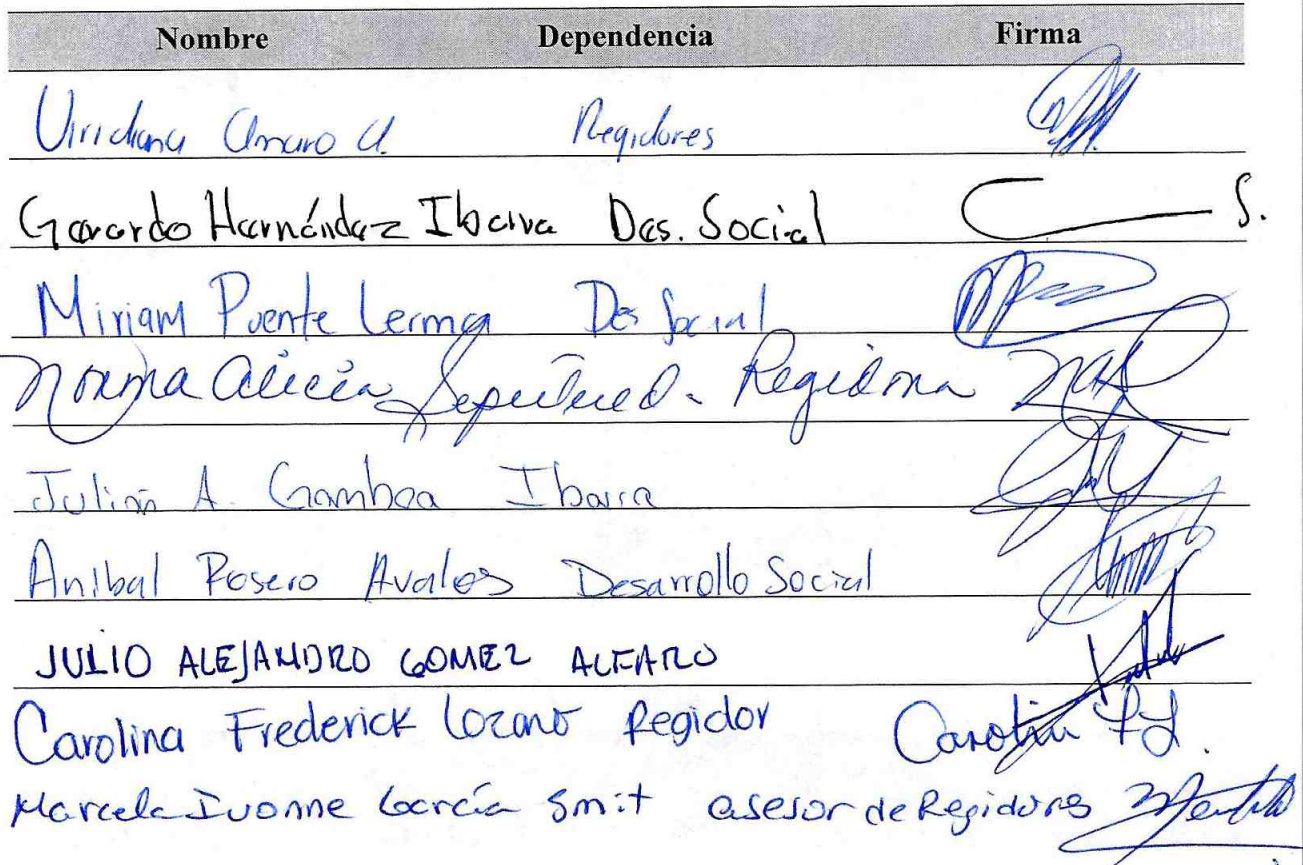 Nombre Dependencia Firma
Viridiana Amaro A. Regidores
Gerardo Hernández Ibarra Des. Social S.
Miriam Puente Lerma Des Social
Norma Alicia Sepúlveda. Regidora
Julián A. Gamboa Ibarra
Anibal Rosero Avalos Desarrollo Social
JULIO ALEJANDRO GOMEZ ALFARO
Carolina Frederick Lozano Regidor Carolina FL.
Marcela Ivonne García Smit asesor de Regidores